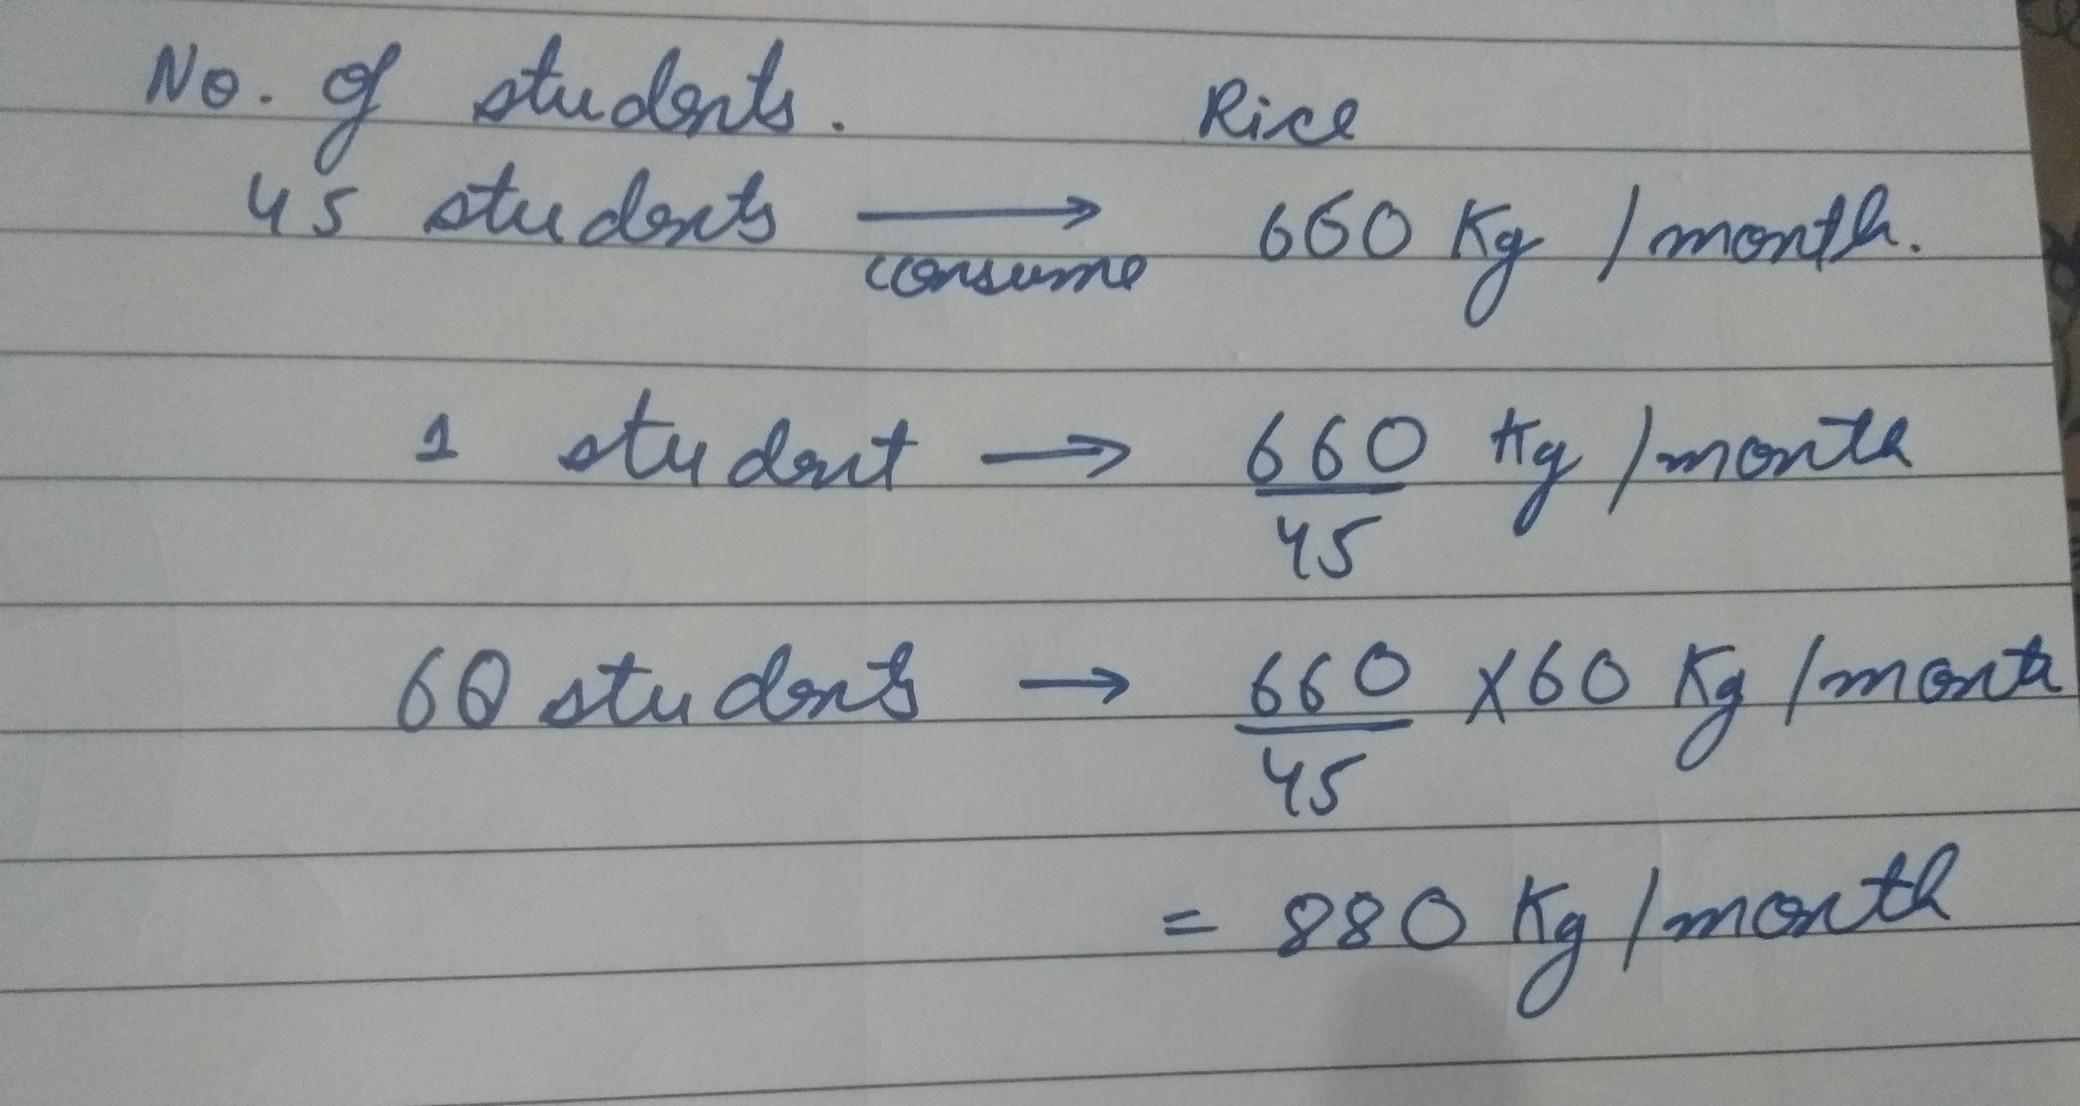 No. of students. Rice
45 students → 660 Kg / month.
consume
1 student → 660/45 Kg / month
60 students → 660/45 X 60 Kg / month
= 880 Kg / month